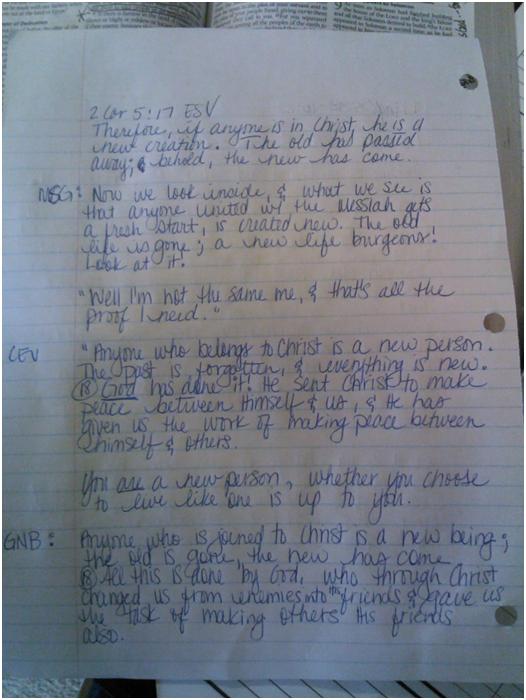 2 Cor 5:17 ESV
Therefore, if anyone is in Christ, he is a
new creation. The old has passed
away; behold, the new has come.
MSG: Now we look inside, & what we see is
that anyone united w/ the Messiah gets
a fresh start, is created new. The old
life is gone; a new life burgeons!
Look at it!
"Well I'm not the same me, & that's all the
proof I need."
CEV "Anyone who belongs to Christ is a new person.
The past is forgotten, & everything is new.
18 God has done it! He sent Christ to make
peace between Himself & us, & He has
given us the work of making peace between
himself & others.
You are a new person, whether you choose
to live like one is up to you.
GNB: Anyone who is joined to Christ is a new being;
the old is gone, the new has come
18 All this is done by God, who through Christ
changed us from enemies into his friends & gave us
the task of making others His friends
also.